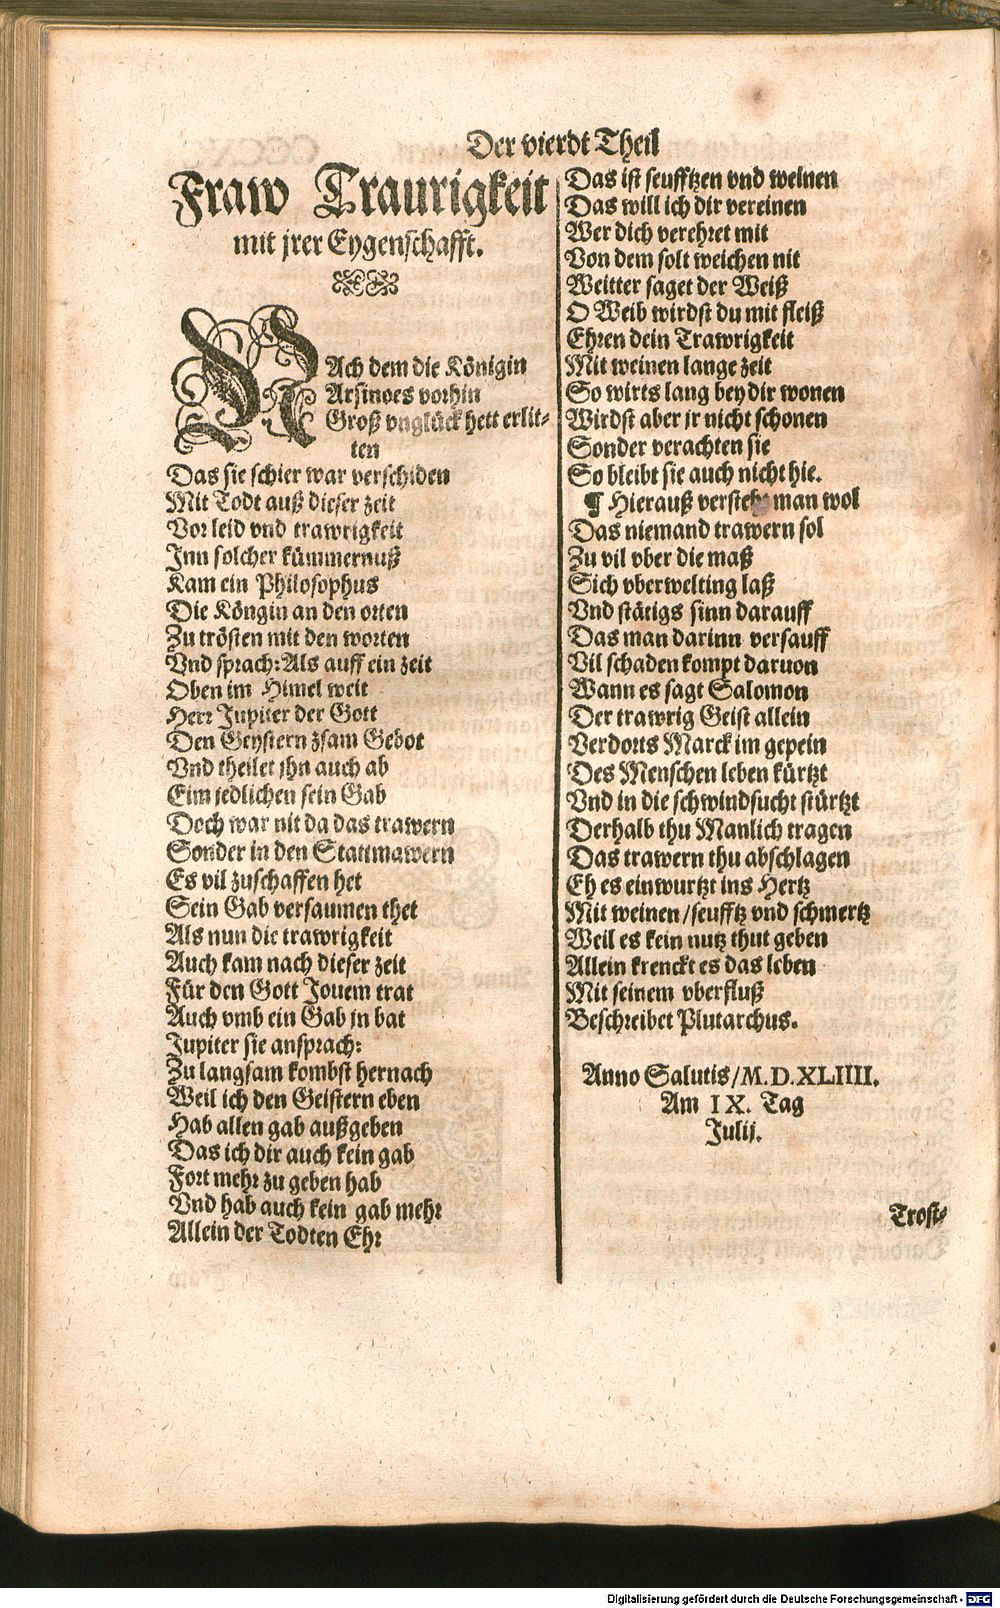 Der vierdt Theil
Fraw Traurigkeit
mit jrer Eygenschafft.
NAch dem die Königin
Arsinoes vorhin
Groß vnglück hett erlit-
ten
Das sie schier war verschiden
Mit Todt auß dieser zeit
Vor leid vnd trawrigkeit
Inn solcher kümmernuß
Kam ein Philosophus
Die Köngin an den orten
Zu trösten mit den worten
Vnd sprach: Als auff ein zeit
Oben im Himel weit
Herr Jupiter der Gott
Den Geystern zsam Gebot
Vnd theilet jhn auch ab
Eim jedlichen sein Gab
Doch war nit da das trawern
Sonder in den Stattmawern
Es vil zuschaffen het
Sein Gab versaumen thet
Als nun die trawrigkeit
Auch kam nach dieser zeit
Für den Gott Jouem trat
Auch vmb ein Gab jn bat
Jupiter sie ansprach:
Zu langsam kombst hernach
Weil ich den Geistern eben
Hab allen gab außgeben
Das ich dir auch kein gab
Fort mehr zu geben hab
Vnd hab auch kein gab mehr
Allein der Todten Ehr
Das ist seufftzen vnd weinen
Das will ich dir vereinen
Wer dich verehret mit
Von dem solt weichen nit
Weitter saget der Weiß
O Weib wirdst du mit fleiß
Ehren dein Trawrigkeit
Mit weinen lange zeit
So wirts lang bey dir wonen
Wirdst aber jr nicht schonen
Sonder verachten sie
So bleibt sie auch nicht hie.
¶ Hierauß versteht man wol
Das niemand trawern sol
Zu vil vber die maß
Sich vberwelting laß
Vnd stätigs sinn darauff
Das man darinn versauff
Vil schaden kompt daruon
Wann es sagt Salomon
Der trawrig Geist allein
Verdorts Marck im gepein
Des Menschen leben kürtzt
Vnd in die schwindsucht stürtzt
Derhalb thu Manlich tragen
Das trawern thu abschlagen
Eh es einwurtzt ins Hertz
Mit weinen/seufftz vnd schmertz
Weil es kein nutz thut geben
Allein krenckt es das leben
Mit seinem vberfluß
Beschreibet Plutarchus.
Anno Salutis/M.D.XLIIII.
Am IX. Tag
Julij.
Trost-
Digitalisierung gefördert durch die Deutsche Forschungsgemeinschaft - DFG